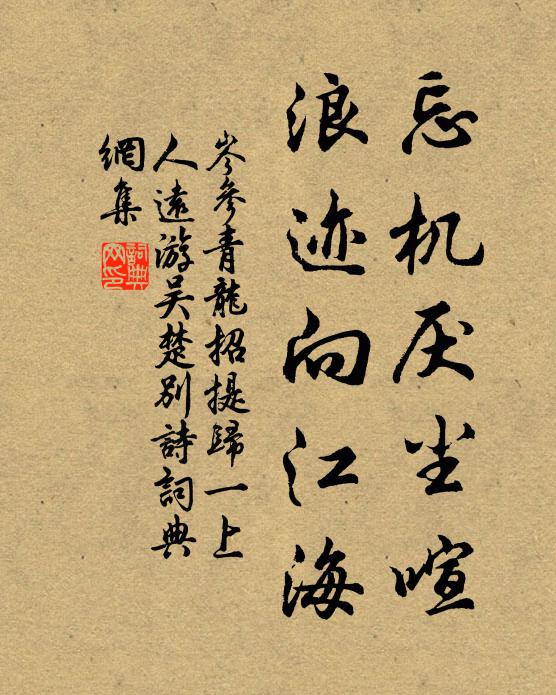 忘机厌尘喧
浪迹向江海
岑參青龍招提歸一上
人遠游吳楚別詩詞典
網集
詞典
网印